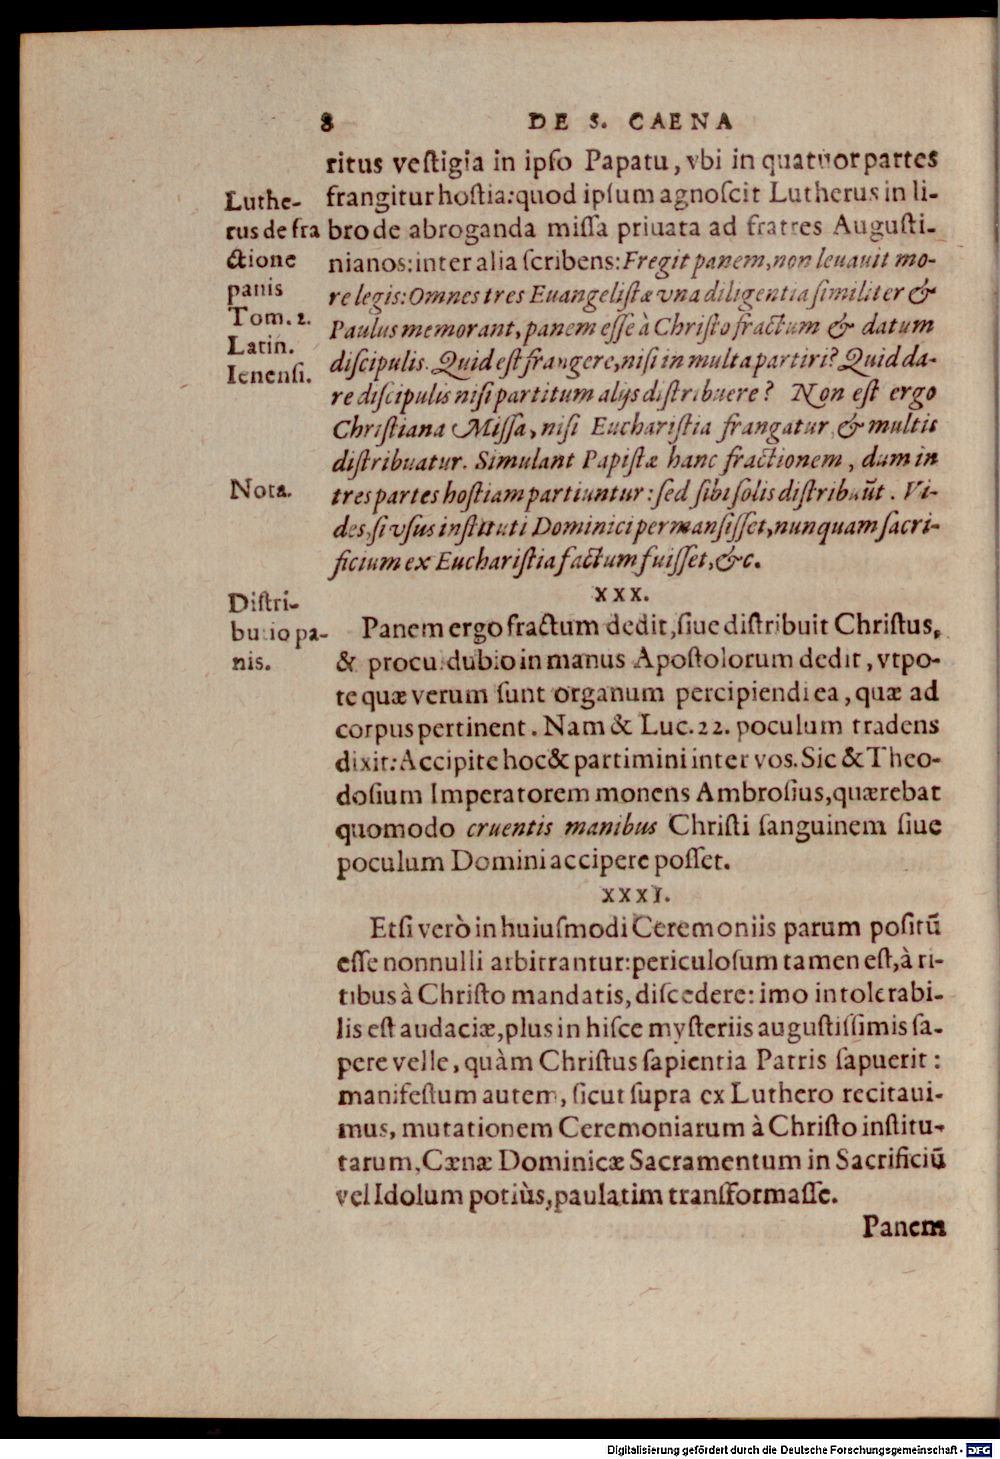 8 DE S. CAENA
ritus vestigia in ipso Papatu, vbi in quatuor partes
frangitur hostia: quod ipsum agnoscit Lutherus in li-
bro de abroganda missa priuata ad fratres Augusti-
nianos: inter alia scribens: Fregit panem, non leuauit mo-
re legis: Omnes tres Euangelistæ vna diligentia similiter &
Paulus memorant, panem esse à Christo fractum & datum
discipulis. Quid est frangere, nisi in multa partiri? Quid da-
re discipulis nisi partitum alijs distribuere? Non est ergo
Christiana Missa, nisi Eucharistia frangatur & multis
distribuatur. Simulant Papistæ hanc fractionem, dum in
tres partes hostiam partiuntur: sed sibi solis distribuũt. Vi-
des, si vsus instituti Dominici permansisset, nunquam sacri-
ficium ex Eucharistia factum fuisset, &c.
Luthe-
rus de fra
ctione
panis
Tom. 2.
Latin.
Ienensi.
Nota.
XXX.
Panem ergo fractum dedit, siue distribuit Christus,
& procu dubio in manus Apostolorum dedit, vtpo-
te quæ verum sunt organum percipiendi ea, quæ ad
corpus pertinent. Nam & Luc. 22. poculum tradens
dixit: Accipite hoc & partimini inter vos. Sic & Theo-
dosium Imperatorem monens Ambrosius, quærebat
quomodo cruentis manibus Christi sanguinem siue
poculum Domini accipere posset.
Distri-
butio pa-
nis.
XXXI.
Etsi verò in huiusmodi Ceremoniis parum positũ
esse nonnulli arbitrantur: periculosum tamen est, à ri-
tibus à Christo mandatis, discedere: imo intolerabi-
lis est audaciæ, plus in hisce mysteriis augustissimis sa-
pere velle, quàm Christus sapientia Patris sapuerit:
manifestum autem, sicut supra ex Luthero recitaui-
mus, mutationem Ceremoniarum à Christo institu-
tarum, Cænæ Dominicæ Sacramentum in Sacrificiũ
vel Idolum potiùs, paulatim transformasse.
Panem
Digitalisierung gefördert durch die Deutsche Forschungsgemeinschaft - DFG